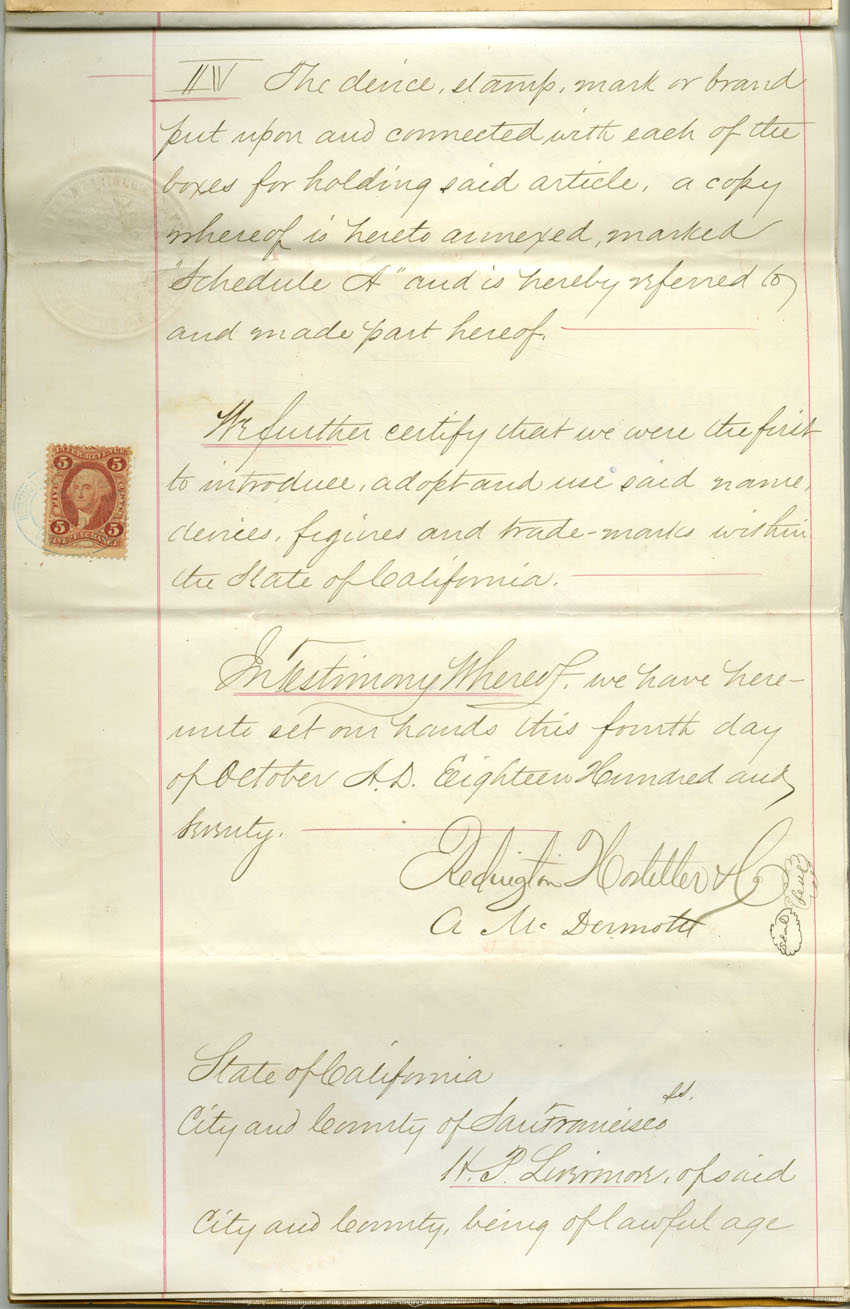 IIV The device, stamp, mark or brand
put upon and connected with each of the
boxes for holding said article, a copy
whereof is hereto annexed, marked
"Schedule A" and is hereby referred to
and made part hereof.
We further certify that we were the first
to introduce, adopt and use said name,
devices, figures and trade-marks within
the State of California.
INTER. REVENUE
5 5
FIVE CENTS
5 5
INLD EXCHANGE
In Testimony Whereof, we have here-
unto set our hands this fourth day
of October A.D. Eighteen Hundred and
Seventy.
Redington Hostetter & Co
Seal
A McDermott
Seal
State of California
City and County of San Francisco ss.
H. P. Livermore, of said
City and County, being of lawful age